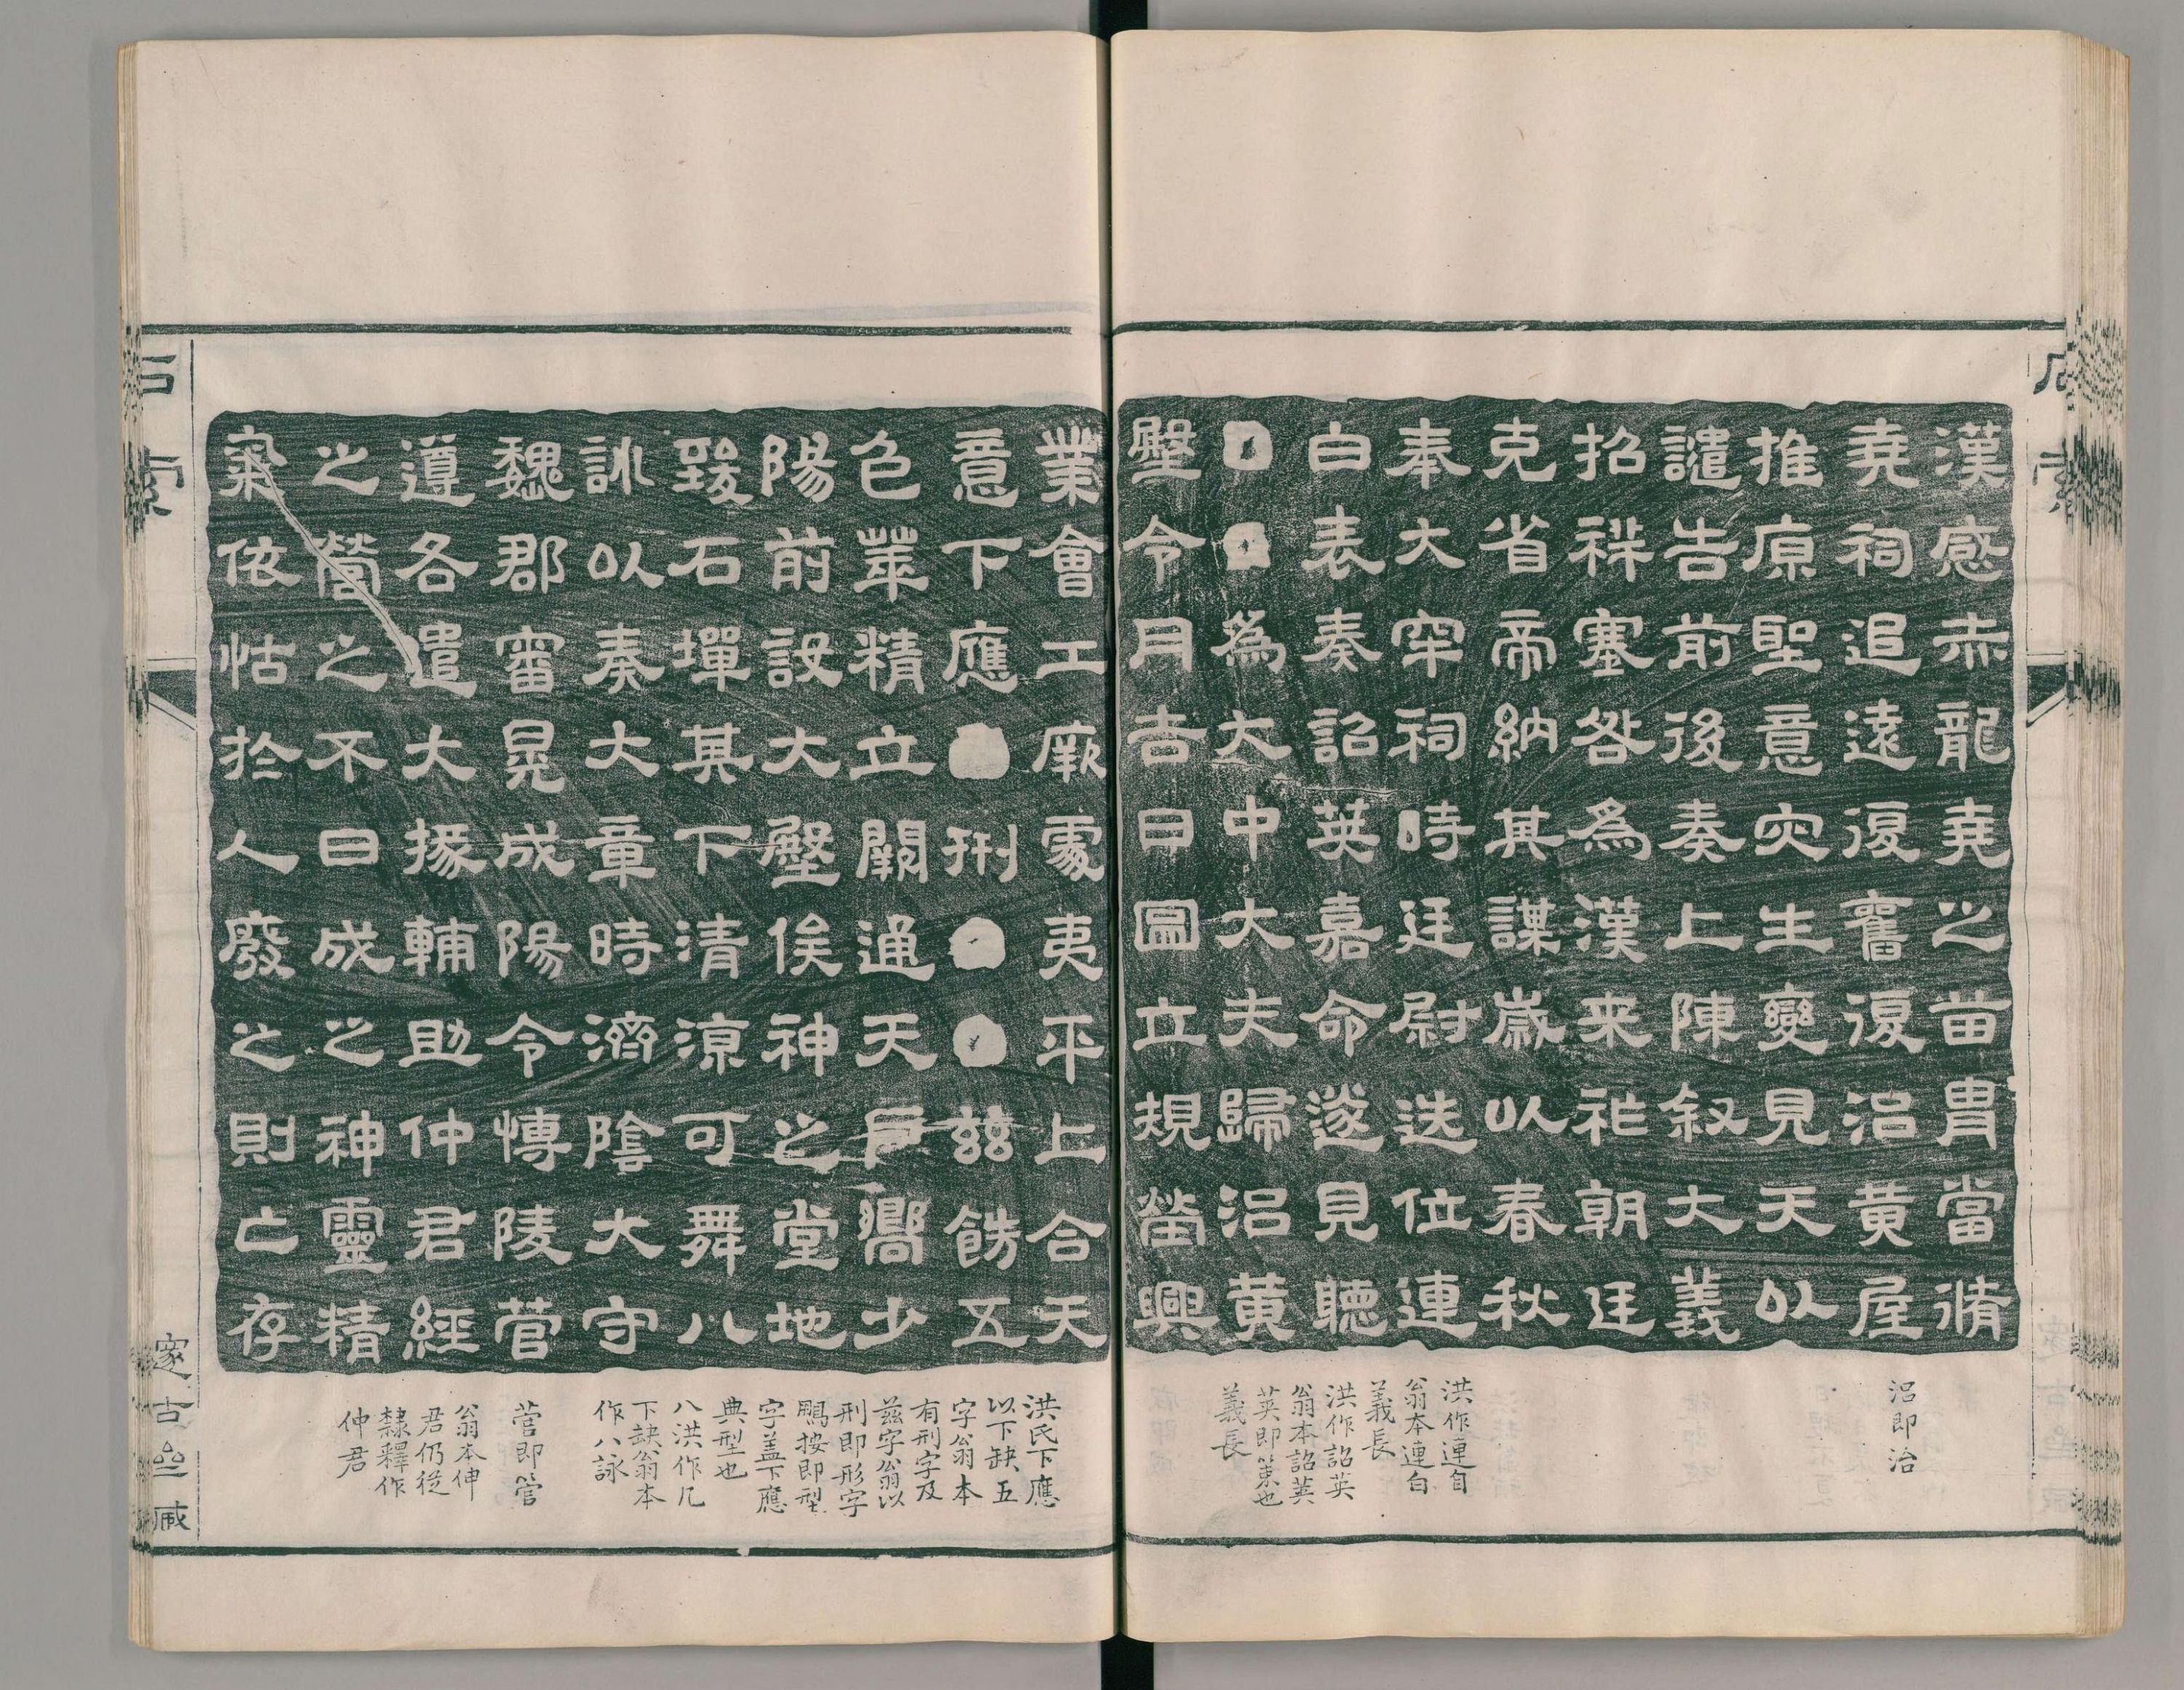 漢感赤龍堯之苗胄當脩
堯祠追遠復舊復沿黃屋
推原聖意灾生變見天以
譴告前後奏上陳叙大義
招祥塞咎為漢来祉朝廷
克省帝納其謀歲以春秋
奉大牢祠時廷尉迭位連
白表奏詔英嘉命遂見聽
為大中大夫歸沿黃
壂令月吉日圖立規塋興
業會工廠處夷平上合天
意下應刑茲餝五
色蕐精立闕通天戶嚮少
陽前設大壂俟神之堂地
毀石墠其下清涼可舞八
訛以奏大章時濟陰大守
魏郡審晃成陽令博陵菅
遵各遣大掾輔助仲君經
之營之不日成之神靈精
氣依怙於人廢之則亡存
沿即治
洪作連自
翁本連白
義長
洪作詔英
翁本詔荚
荚即策也
義長
洪氏下應
以下缺五
字翁本
有刑字及
茲字翁以
刑即形字
鵬按即型
字蓋下應
典型也
八洪作几
下缺翁本
作八詠
菅即管
翁本伸
君仍從
隸釋作
仲君
石索
邃古亝臧